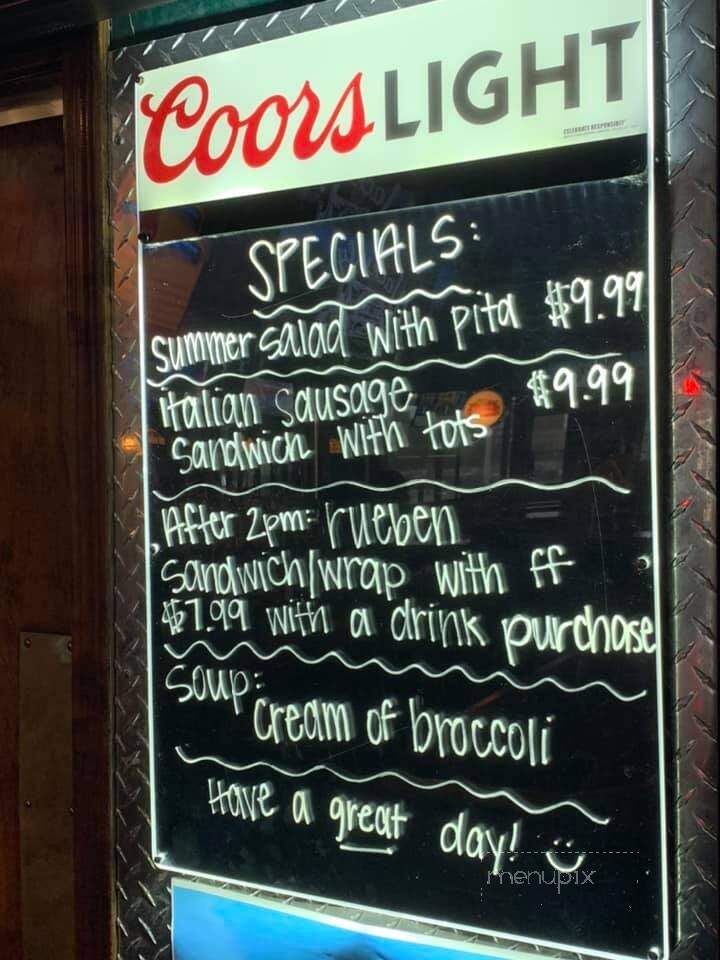 Coors LIGHT
CELEBRATE RESPONSIBLY
SPECIALS:
summer salad with pita $9.99
italian sausage $9.99
sandwich with tots
After 2pm: rueben
sandwich/wrap with ff
$7.99 with a drink purchase
Soup:
cream of broccoli
Have a great day!
menupix